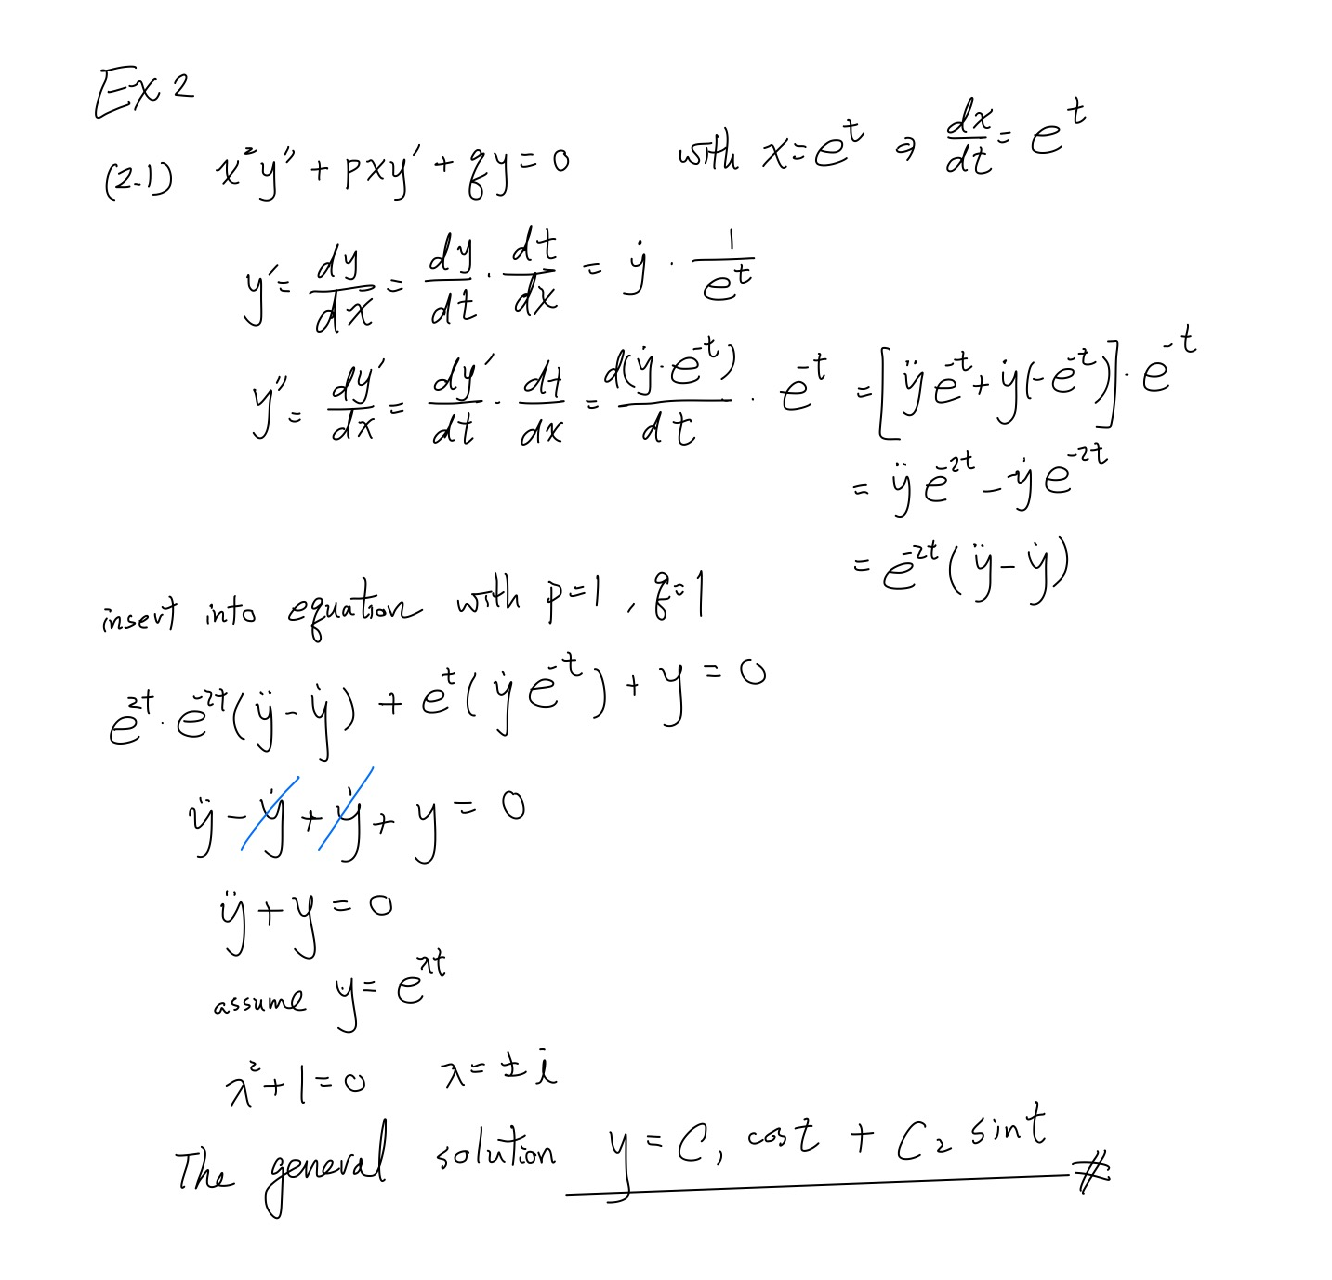 Ex 2
(2.1) x²y″ + pxy′ + qy = 0 with x = e^t ⇒ dx/dt = e^t
y′ = dy/dx = dy/dt · dt/dx = ẏ · 1/e^t
y″ = dy′/dx = dy′/dt · dt/dx = d(ẏ·e^-t)/dt · e^-t = [ÿe^-t + ẏ(-e^-t)] · e^-t
= ÿe^-2t - ẏe^-2t
= e^-2t(ÿ - ẏ)
insert into equation with p=1, q=1
e^2t · e^-2t(ÿ - ẏ) + e^t(ẏe^-t) + y = 0
ÿ - ẏ + ẏ + y = 0
ÿ + y = 0
assume y = e^λt
λ² + 1 = 0 λ = ± i
The general solution y = C₁ cos t + C₂ sin t #